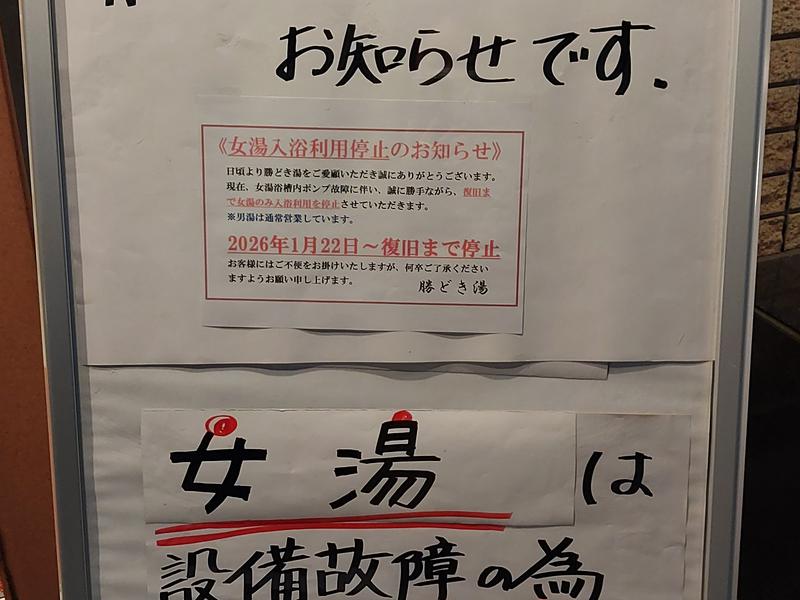 お知らせです.
《女湯入浴利用停止のお知らせ》
日頃より勝どき湯をご愛顧いただき誠にありがとうございます。
現在、女湯浴槽内ポンプ故障に伴い、誠に勝手ながら、復旧ま
で女湯のみ入浴利用を停止させていただきます。
※男湯は通常営業しています。
2026年1月22日～復旧まで停止
お客様にはご不便をお掛けいたしますが、何卒ご了承ください
ますようお願い申し上げます。
勝どき湯
女湯は
設備故障の為